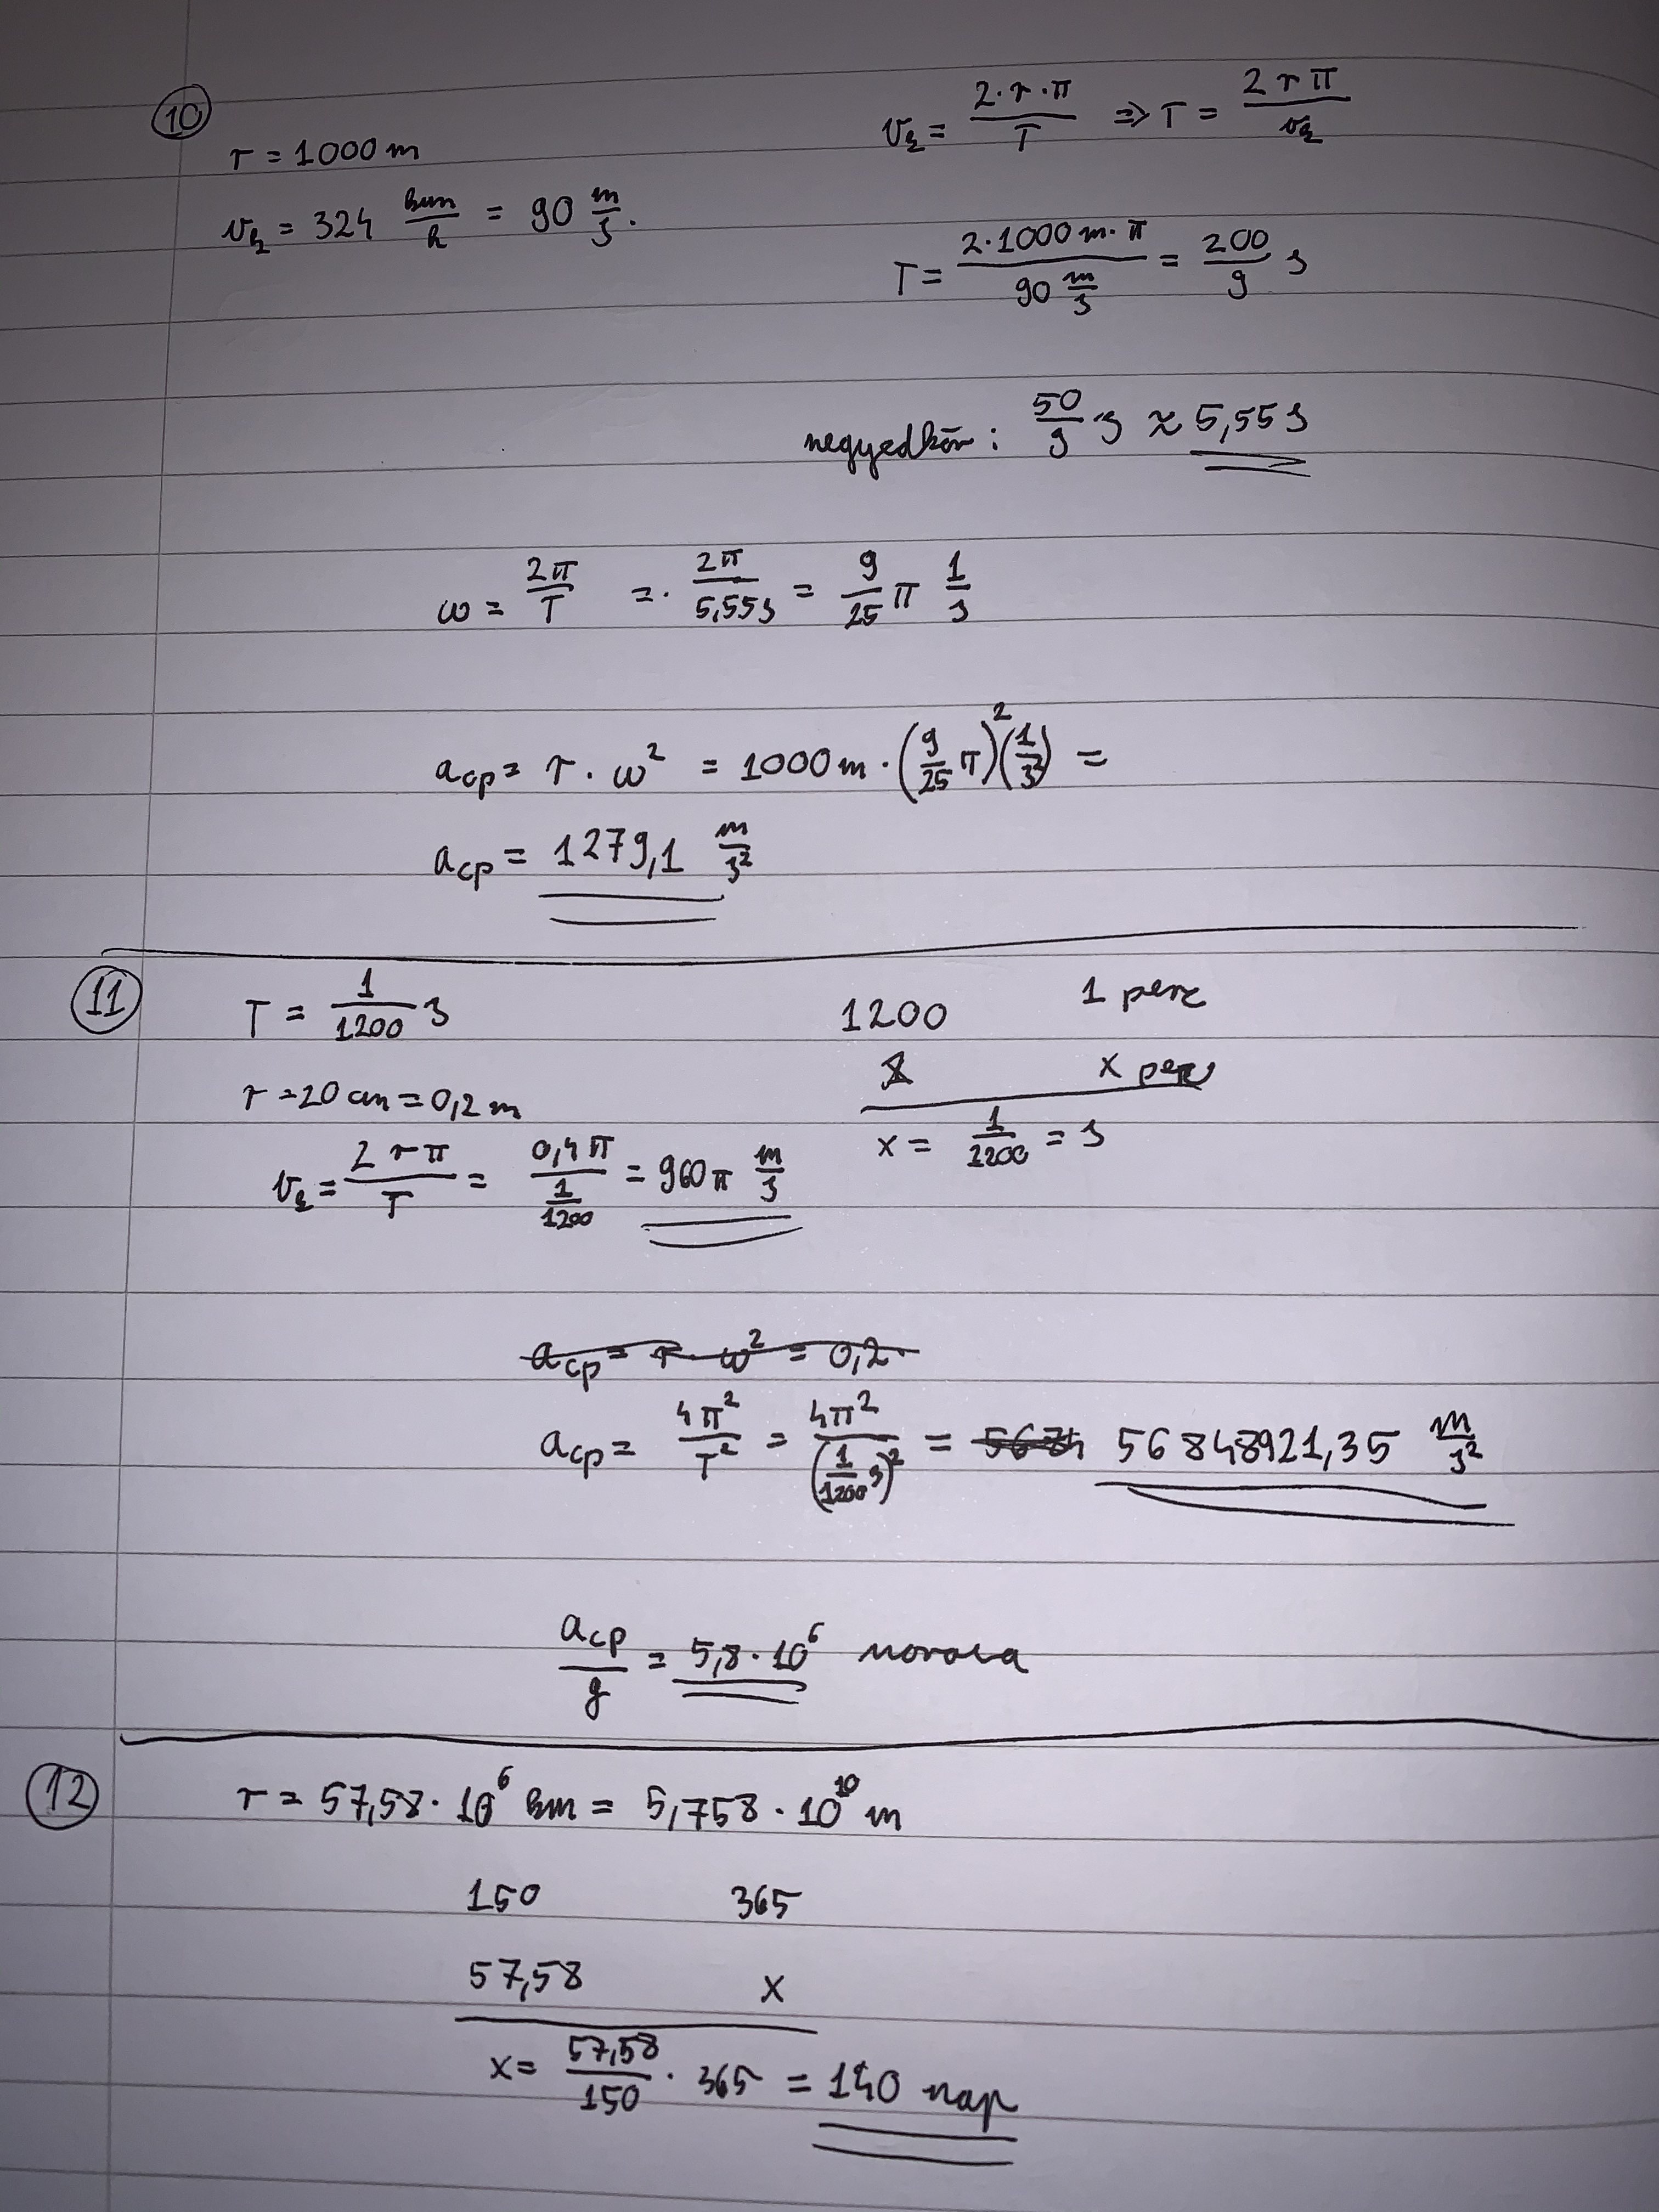 10
r = 1000 m
v_k = 324 km/h = 90 m/s.
v_k = 2·r·π/T ⇒ T = 2rπ/v_k
T = 2·1000 m·π/90 m/s = 200/9 s
negyedkör: 50/9 s ≈ 5,55 s
ω = 2π/T =· 2π/5,55s = 9/25 π 1/s
a_cp = r · ω² = 1000 m · (9/25 π)² (1/s²) =
a_cp = 1279,1 m/s²
11
T = 1/1200 s
1200 1 perc
1 x perc
r = 20 cm = 0,2 m
x = 1/1200 = s
v_k = 2rπ/T = 0,4π/(1/1200) = 960π m/s
a_cp = r · ω² = 0,2·
a_cp = 4π²/T² = 4π²/(1/1200 s)² = 5684 56848921,35 m/s²
a_cp/g = 5,8·10⁶
12
r = 57,58·10⁶ km = 5,758·10¹⁰ m
150 365
57,58 x
x = 57,58/150 · 365 = 140 nap